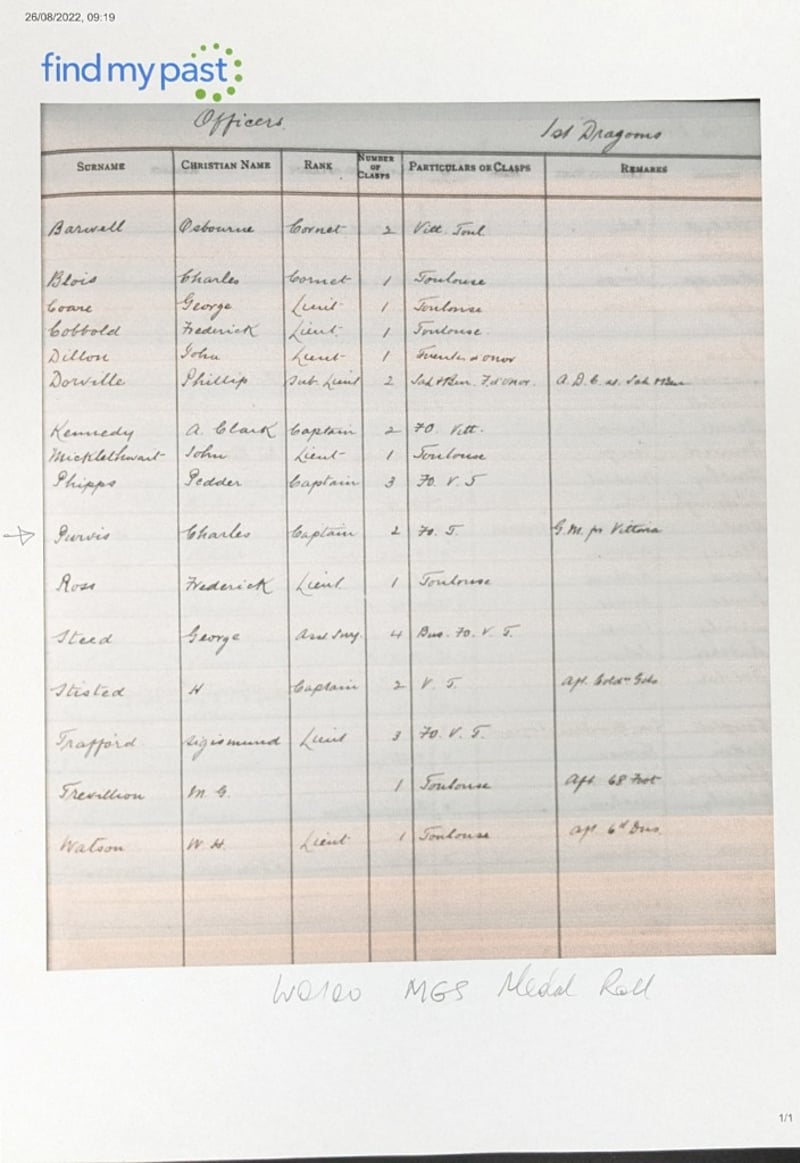 26/08/2022, 09:19
findmypast
Officers. 1st Dragoons
SURNAME CHRISTIAN NAME RANK NUMBER OF CLASPS PARTICULARS OF CLASPS REMARKS
Barwell Osbourne Cornet 2 Vitt. Toul
Blois Charles Cornet 1 Toulouse
Coare George Lieut 1 Toulouse
Cobbold Frederick Lieut. 1 Toulouse.
Dillon John Lieut 1 Fuentes d onor
Dorville Phillip Sub. Lieut 2 Sah & Ben. F d'onor. A.D.C. at Sah & Ben
Kennedy A. Clark Captain 2 FO. Vitt.
Micklethwart John Lieut 1 Toulouse
Phipps Pedder Captain 3 FO. V. T
Purvis Charles Captain 2 FO. T. G.M. for Vittoria
Ross Frederick Lieut 1 Toulouse
Steed George Asst Surg. 4 Bus. FO. V. T.
Stisted H Captain 2 V. T. Aft. Colds Gds
Trafford Sigismund Lieut 3 FO. V. T.
Trevillion M. G. 1 Toulouse Aft 68 Foot
Watson W. H. Lieut 1 Toulouse aft. 6d Dns.
WO100 MGS Medal Roll
1/1